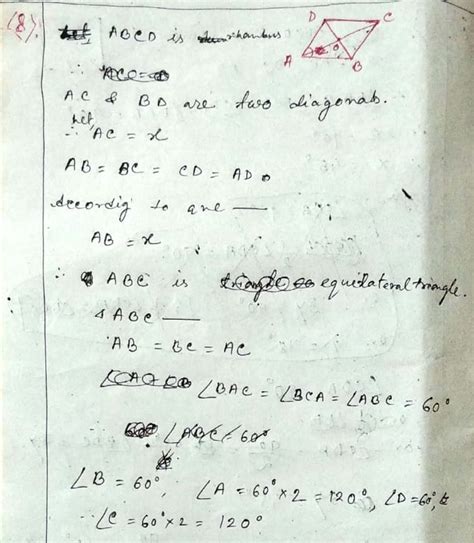 (8).
ABCD is rhombus
D C
A B
O
AC & BD are two diagonals.
Let,
∴ AC = x
AB = BC = CD = AD
Accordig to que —
AB = x
∴ ABC is equilateral triangle.
ABC —
AB = BC = AC
∠BAC = ∠BCA = ∠ABC = 60°
∠ABC = 60°
∠B = 60°, ∠A = 60° × 2 = 120°, ∠D = 60°,
∴ ∠C = 60° × 2 = 120°